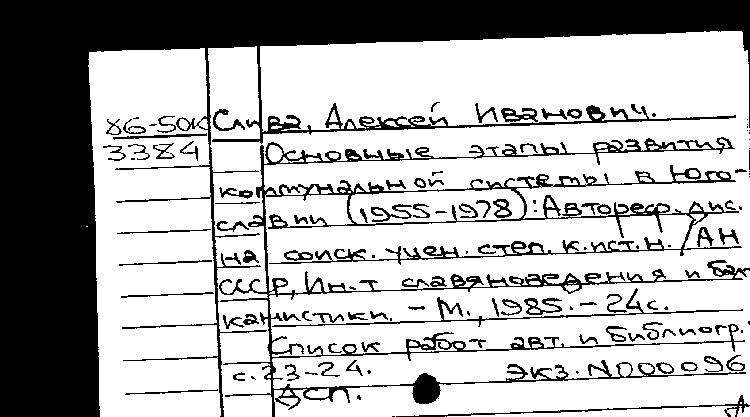 86-50к Слива, Алексей Иванович.
3384 Основные этапы развития
коммунальной системы в Юго-
славии (1955-1978): Автореф. дис.
на соиск. учен. степ. к.ист.н. /АН
СССР, Ин-т славяноведения и бал
канистики. - М., 1985. - 24с.
Список работ авт. и библиогр.:
с. 23-24. Экз. N000096
ДСП.